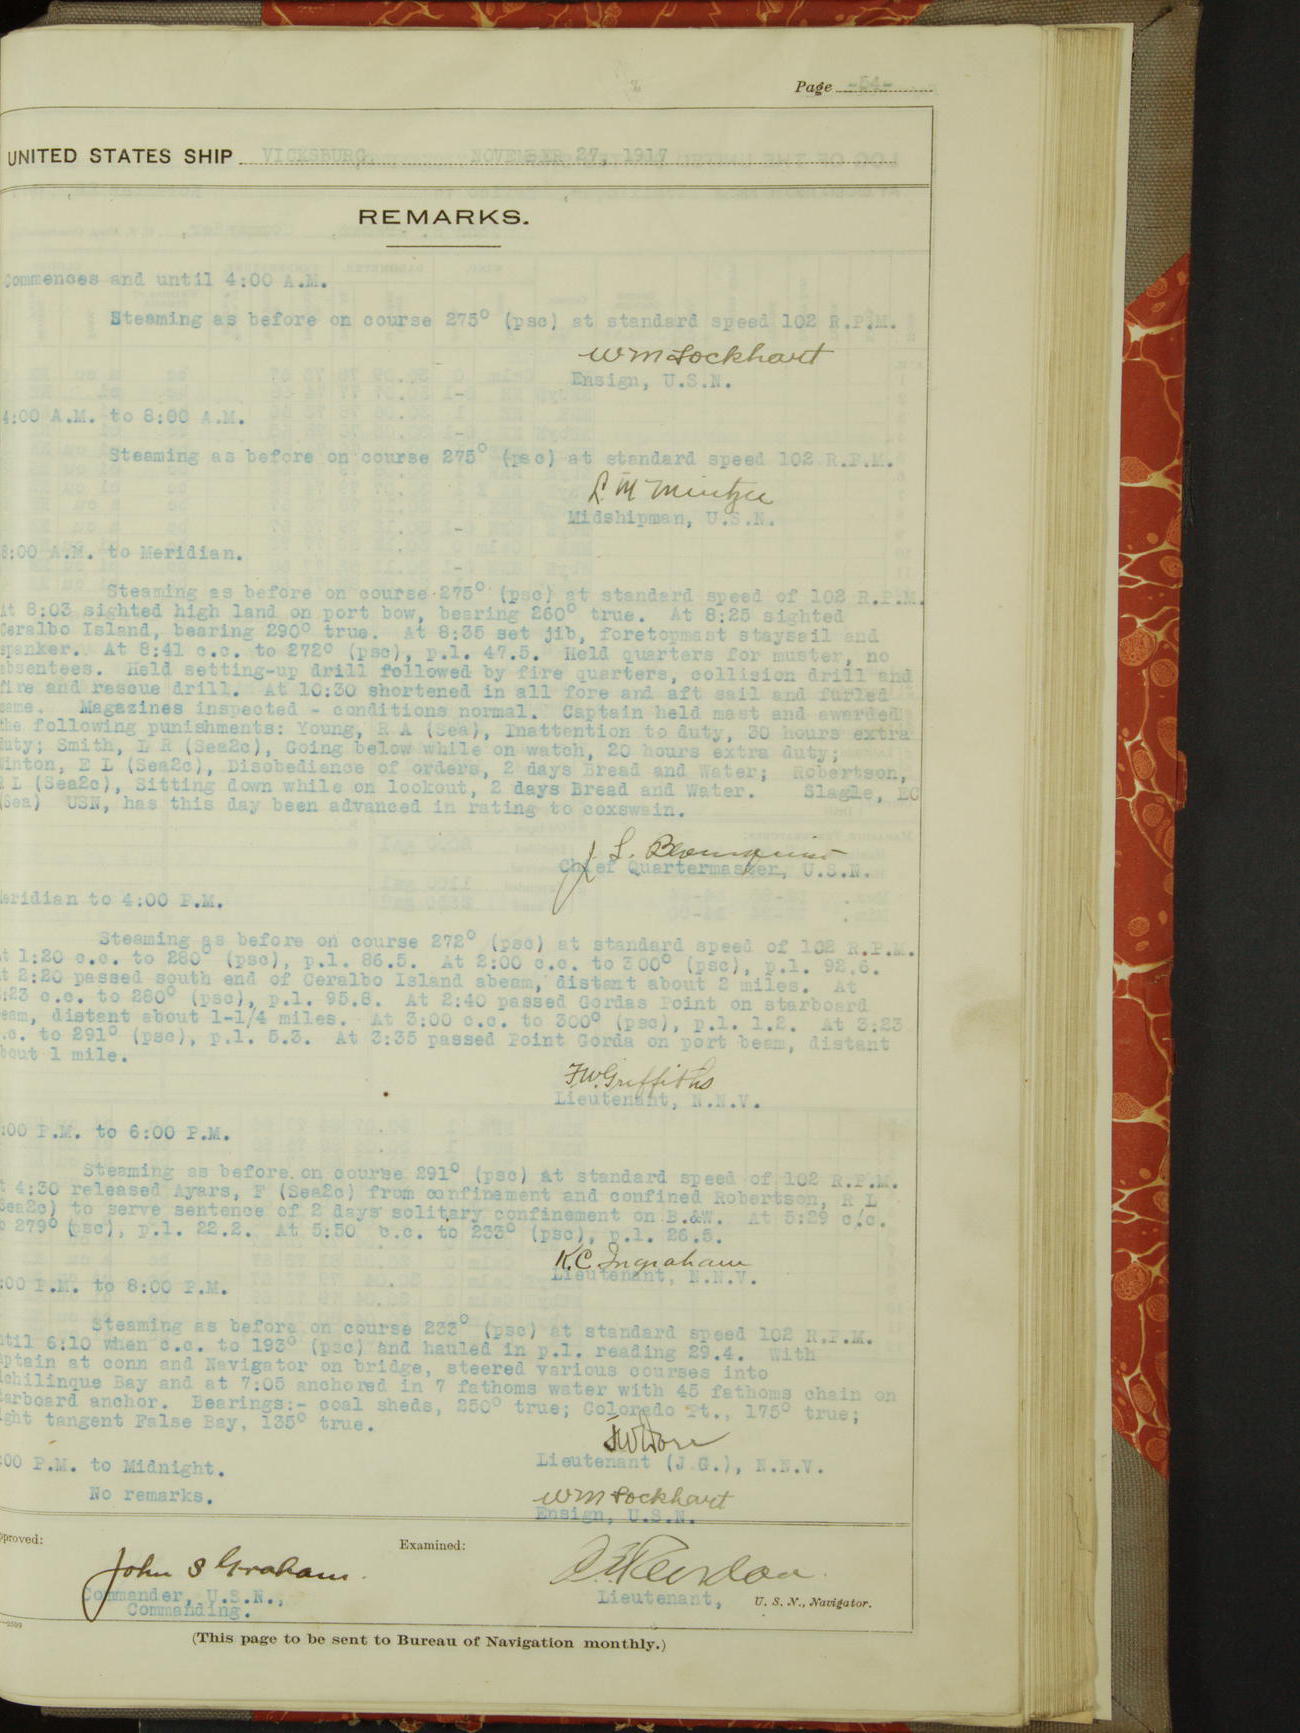 Page -54-
UNITED STATES SHIP VICKSBURG, NOVEMBER 27, 1917
REMARKS.
Commences and until 4:00 A.M.
Steaming as before on course 275° (psc) at standard speed 102 R.P.M.
Wm Lockhart
Ensign, U.S.N.
4:00 A.M. to 8:00 A.M.
Steaming as before on course 275° (psc) at standard speed 102 R.P.M.
L M Mintzer
Midshipman, U.S.N.
8:00 A.M. to Meridian.
Steaming as before on course 275° (psc) at standard speed of 102 R.P.M.
At 8:03 sighted high land on port bow, bearing 260° true. At 8:25 sighted
Ceralbo Island, bearing 290° true. At 8:35 set jib, foretopmast staysail and
spanker. At 8:41 c.c. to 272° (psc), p.l. 47.5. Held quarters for muster, no
absentees. Held setting-up drill followed by fire quarters, collision drill and
fire and rescue drill. At 10:30 shortened in all fore and aft sail and furled
same. Magazines inspected - conditions normal. Captain held mast and awarded
the following punishments: Young, R A (Sea), Inattention to duty, 30 hours extra
duty; Smith, L R (Sea2c), Going below while on watch, 20 hours extra duty;
Winton, E L (Sea2c), Disobedience of orders, 2 days Bread and Water; Robertson,
R L (Sea2c), Sitting down while on lookout, 2 days Bread and Water. Slagle, EC
(Sea) USN, has this day been advanced in rating to coxswain.
J. L. Blomquist
Chief Quartermaster, U.S.N.
Meridian to 4:00 P.M.
Steaming as before on course 272° (psc) at standard speed of 102 R.P.M.
At 1:20 c.c. to 280° (psc), p.l. 86.5. At 2:00 c.c. to 300° (psc), p.l. 92.6.
At 2:20 passed south end of Ceralbo Island abeam, distant about 2 miles. At
:23 c.c. to 280° (psc), p.l. 95.8. At 2:40 passed Gordas Point on starboard
beam, distant about 1-1/4 miles. At 3:00 c.c. to 300° (psc), p.l. 1.2. At 3:23
c.c. to 291° (psc), p.l. 5.3. At 3:35 passed Point Gorda on port beam, distant
about 1 mile.
F.W. Griffiths
Lieutenant, N.N.V.
:00 P.M. to 6:00 P.M.
Steaming as before on course 291° (psc) at standard speed of 102 R.P.M.
At 4:30 released Ayars, F (Sea2c) from confinement and confined Robertson, R L
(Sea2c) to serve sentence of 2 days solitary confinement on B.&W. At 5:29 c/c.
to 279° (psc), p.l. 22.2. At 5:50 c.c. to 233° (psc), p.l. 26.5.
K.C. Ingraham
Lieutenant, N.N.V.
:00 P.M. to 8:00 P.M.
Steaming as before on course 233° (psc) at standard speed 102 R.P.M.
until 6:10 when c.c. to 193° (psc) and hauled in p.l. reading 29.4. With
Captain at conn and Navigator on bridge, steered various courses into
ichilinque Bay and at 7:05 anchored in 7 fathoms water with 45 fathoms chain on
starboard anchor. Bearings:- coal sheds, 250° true; Colorado Pt., 175° true;
right tangent False Bay, 135° true.
Lieutenant (J.G.), N.N.V.
:00 P.M. to Midnight.
No remarks.
Wm Lockhart
Ensign, U.S.N.
pproved:
Examined:
John S Graham.
Commander, U.S.N.,
Commanding.
Lieutenant, U. S. N., Navigator.
(This page to be sent to Bureau of Navigation monthly.)